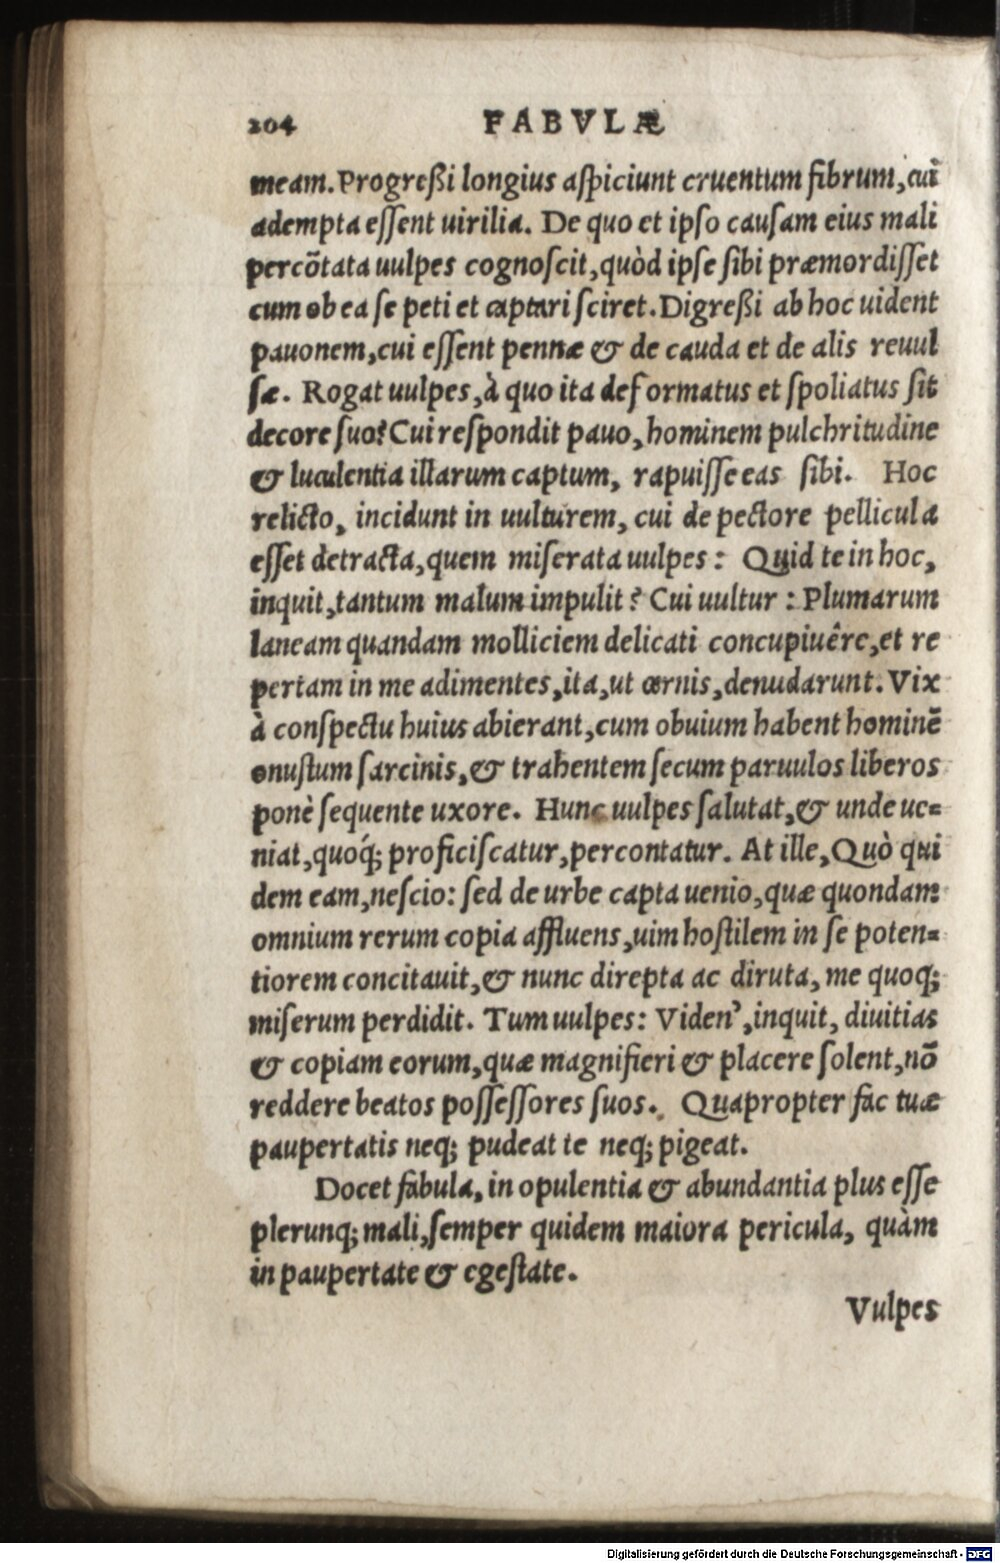 204 FABVLÆ
meam. Progreßi longius aſpiciunt cruentum fibrum, cui
adempta eſſent uirilia. De quo et ipſo cauſam eius mali
percõtata uulpes cognoſcit, quòd ipſe ſibi præmordiſſet
cum ob ea ſe peti et captari ſciret. Digreßi ab hoc uident
pauonem, cui eſſent pennæ & de cauda et de alis reuul
ſæ. Rogat uulpes, à quo ita deformatus et ſpoliatus ſit
decore ſuo? Cui reſpondit pauo, hominem pulchritudine
& luculentia illarum captum, rapuiſſe eas ſibi. Hoc
relicto, incidunt in uulturem, cui de pectore pellicula
eſſet detracta, quem miſerata uulpes: Quid te in hoc,
inquit, tantum malum impulit? Cui uultur: Plumarum
laneam quandam molliciem delicati concupiuêre, et re
pertam in me adimentes, ita, ut cernis, denudarunt. Vix
à conſpectu huius abierant, cum obuium habent hominẽ
onuſtum ſarcinis, & trahentem ſecum paruulos liberos
ponè ſequente uxore. Hunc uulpes ſalutat, & unde ue=
niat, quóq; proficiſcatur, percontatur. At ille, Quò qui
dem eam, neſcio: ſed de urbe capta uenio, quæ quondam
omnium rerum copia affluens, uim hoſtilem in ſe poten=
tiorem concitauit, & nunc direpta ac diruta, me quoq;
miſerum perdidit. Tum uulpes: Viden', inquit, diuitias
& copiam eorum, quæ magnifieri & placere ſolent, nõ
reddere beatos poſſeſſores ſuos. Quapropter fac tuæ
paupertatis neq; pudeat te neq; pigeat.
Docet fabula, in opulentia & abundantia plus eſſe
plerunq; mali, ſemper quidem maiora pericula, quàm
in paupertate & egeſtate.
Vulpes
Digitalisierung gefördert durch die Deutsche Forschungsgemeinschaft - DFG